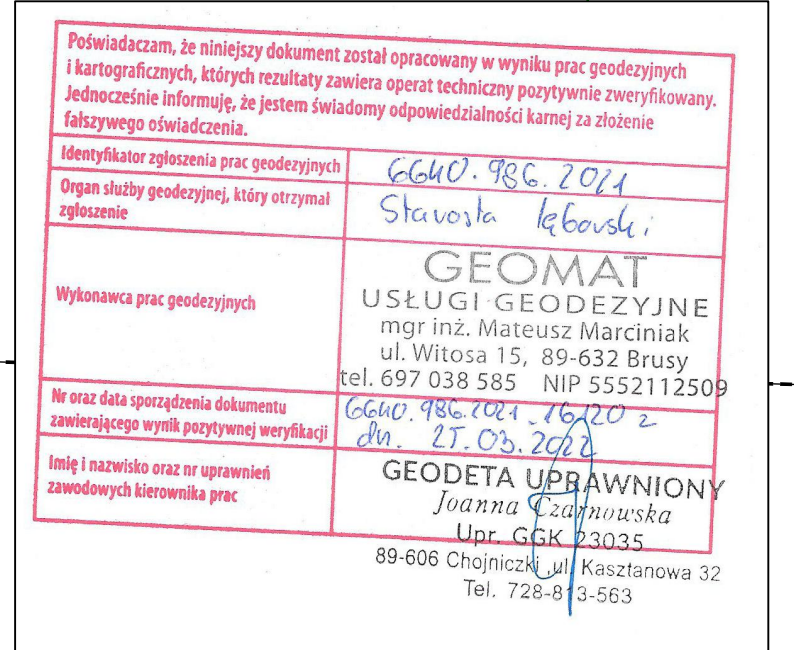 Poświadczam, że niniejszy dokument został opracowany w wyniku prac geodezyjnych
i kartograficznych, których rezultaty zawiera operat techniczny pozytywnie zweryfikowany.
Jednocześnie informuję, że jestem świadomy odpowiedzialności karnej za złożenie
fałszywego oświadczenia.
Identyfikator zgłoszenia prac geodezyjnych
6640.986.2021
Organ służby geodezyjnej, który otrzymał
zgłoszenie
Starosta lęborski
Wykonawca prac geodezyjnych
GEOMAT
USŁUGI GEODEZYJNE
mgr inż. Mateusz Marciniak
ul. Witosa 15, 89-632 Brusy
tel. 697 038 585 NIP 5552112509
Nr oraz data sporządzenia dokumentu
zawierającego wynik pozytywnej weryfikacji
6640.986.2021_16120 z
dn. 25.03.2022
Imię i nazwisko oraz nr uprawnień
zawodowych kierownika prac
GEODETA UPRAWNIONY
Joanna Czarnowska
Upr. GGK 23035
89-606 Chojniczki ,ul. Kasztanowa 32
Tel. 728-813-563